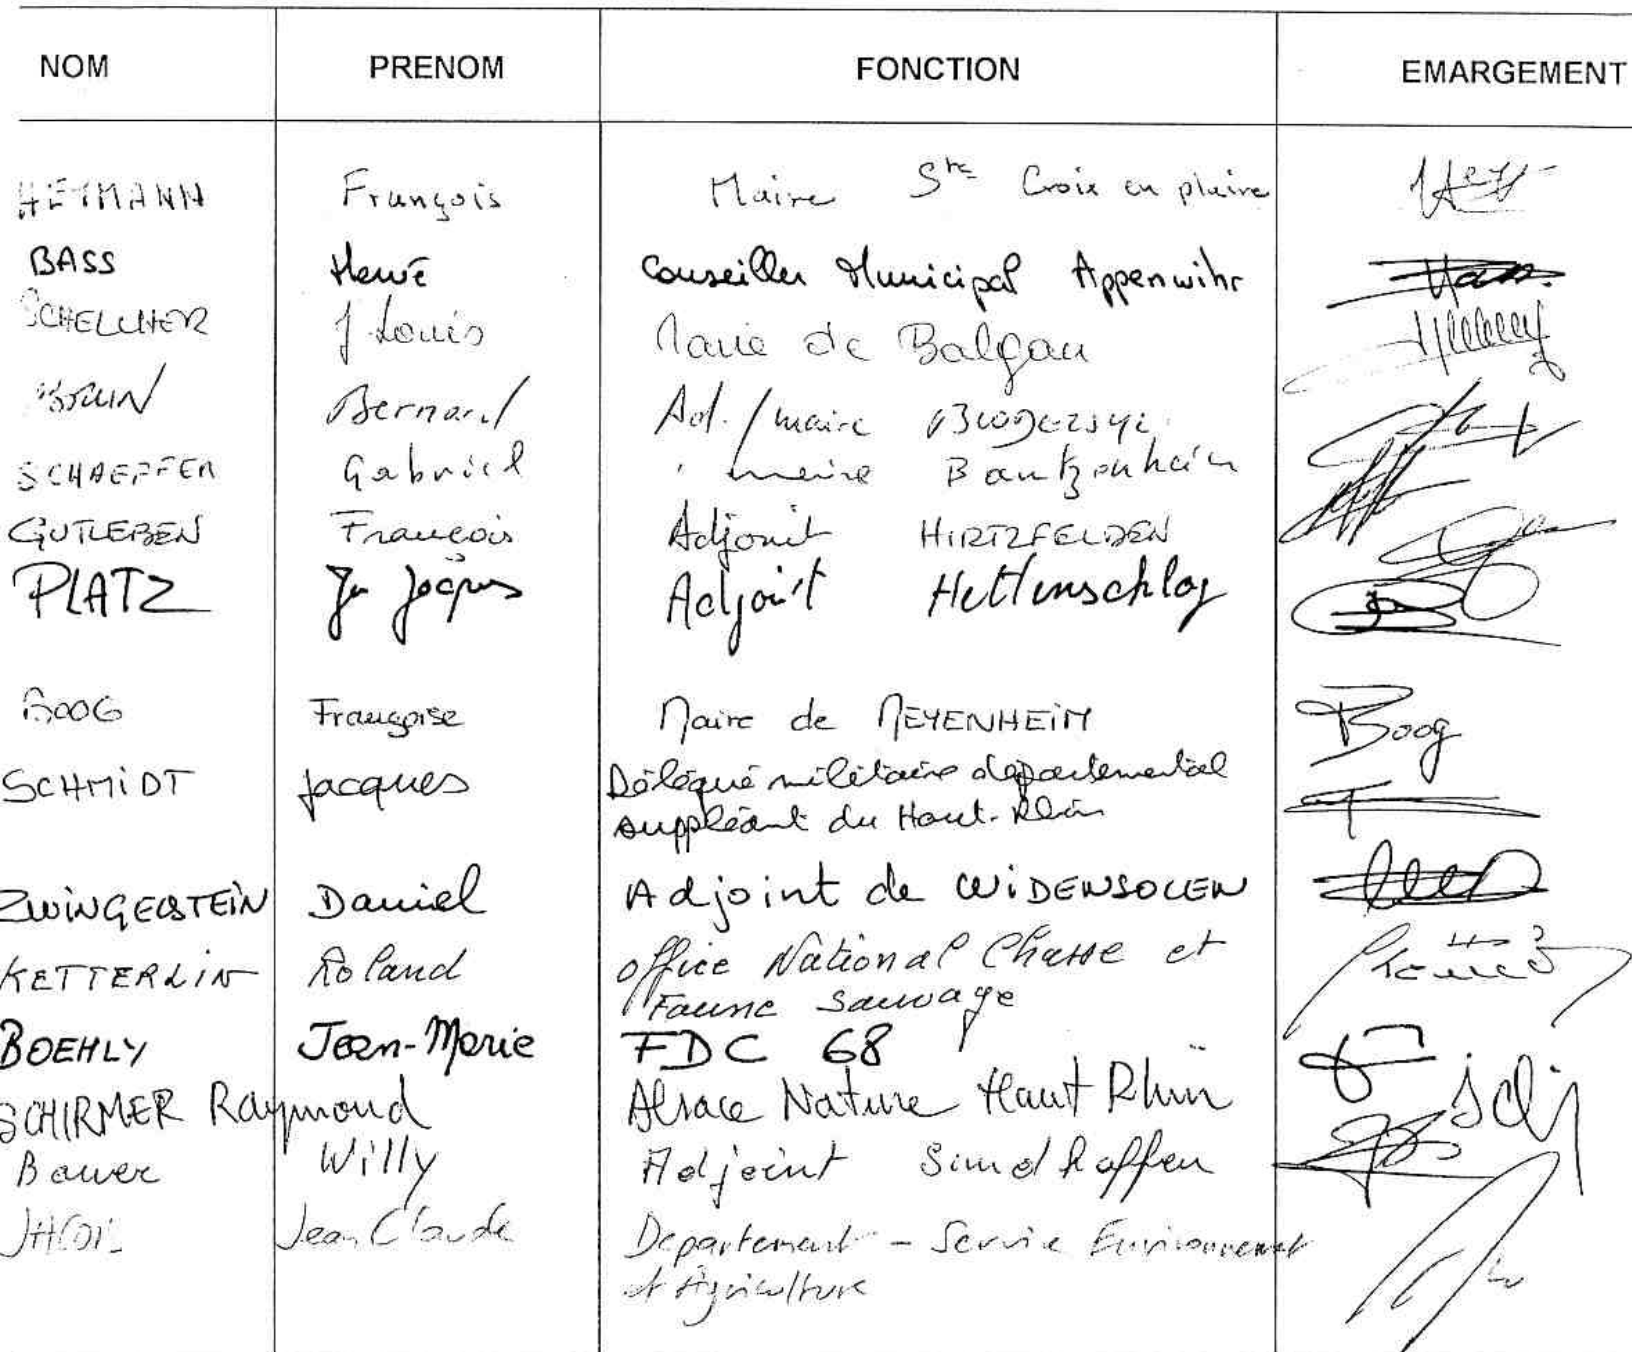 NOM PRENOM FONCTION EMARGEMENT
HEYMANN François Maire Ste Croix en plaine
BASS Hervé Conseiller Municipal Appenwihr
SCHELCHER J. Louis Maire de Balgau
Bernard Ad. / maire
SCHAEFFER Gabriel maire Bantzenheim
GUTLEBEN François Adjoint HIRTZFELDEN
PLATZ Jn Jacques Adjoint Hettenschlag
BOOG Françoise Maire de MEYENHEIM Boog
SCHMIDT Jacques Délégué militaire départemental
suppléant du Haut-Rhin
ZWINGELSTEIN Daniel Adjoint de WIDENSOLEN
KETTERLIN Roland Office National Chasse et
Faune Sauvage
BOEHLY Jean-Marie FDC 68
SCHIRMER Raymond Alsace Nature Haut Rhin
Bauer Willy Adjoint
Jean Claude Departement - Service Environnement
et Agriculture